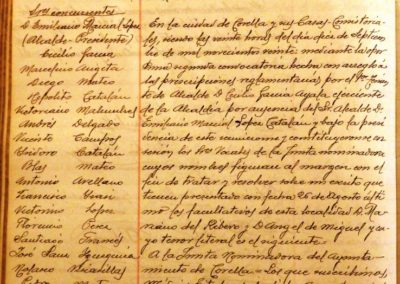 Sres concurrentes
D. Emiliano Garcia Lopez
(Alcalde-Presidente)
Cecilio Garcia
Marcelino Arrieta
Diego Mateo
Hipolito Catalán
Victoriano Malumbres
Andrés Delgado
Vicente Campos
Isidoro Catalán
Blas Mateo
Antonio Arellano
Francisco
Victorino Lopez
Florencio
Santiago Francés
José Sanz
En la ciudad de Corella y sus Casas Consistoria-
les, siendo las veinte horas del día doce de Septiem-
bre de mil novecientos veinte, mediante la opor-
tuna segunda convocatoria hecha con arreglo á
las prescripciones reglamentarias por el
de Alcalde D. Cecilio Garcia Ayala ejerciente
de la Alcaldia por ausencia del Sr. Alcalde D.
Emiliano Garcia Lopez Catalán y bajo la presi-
dencia de este reunieronse y constituyeronse en
sesión los Sres Vocales de la Junta nominadora
cuyos nombres figuran al margen con el
fin de tratar y resolver sobre un escrito que
tienen presentado con fecha 26 de Agosto últi-
mo los facultativos de esta localidad D. Ma-
riano del Ribero y D. Angel de Miguel y cu-
yo tenor literal es el siguiente:
A la Junta Nominadora del Ayunta-
miento de Corella = Los que suscribimos,